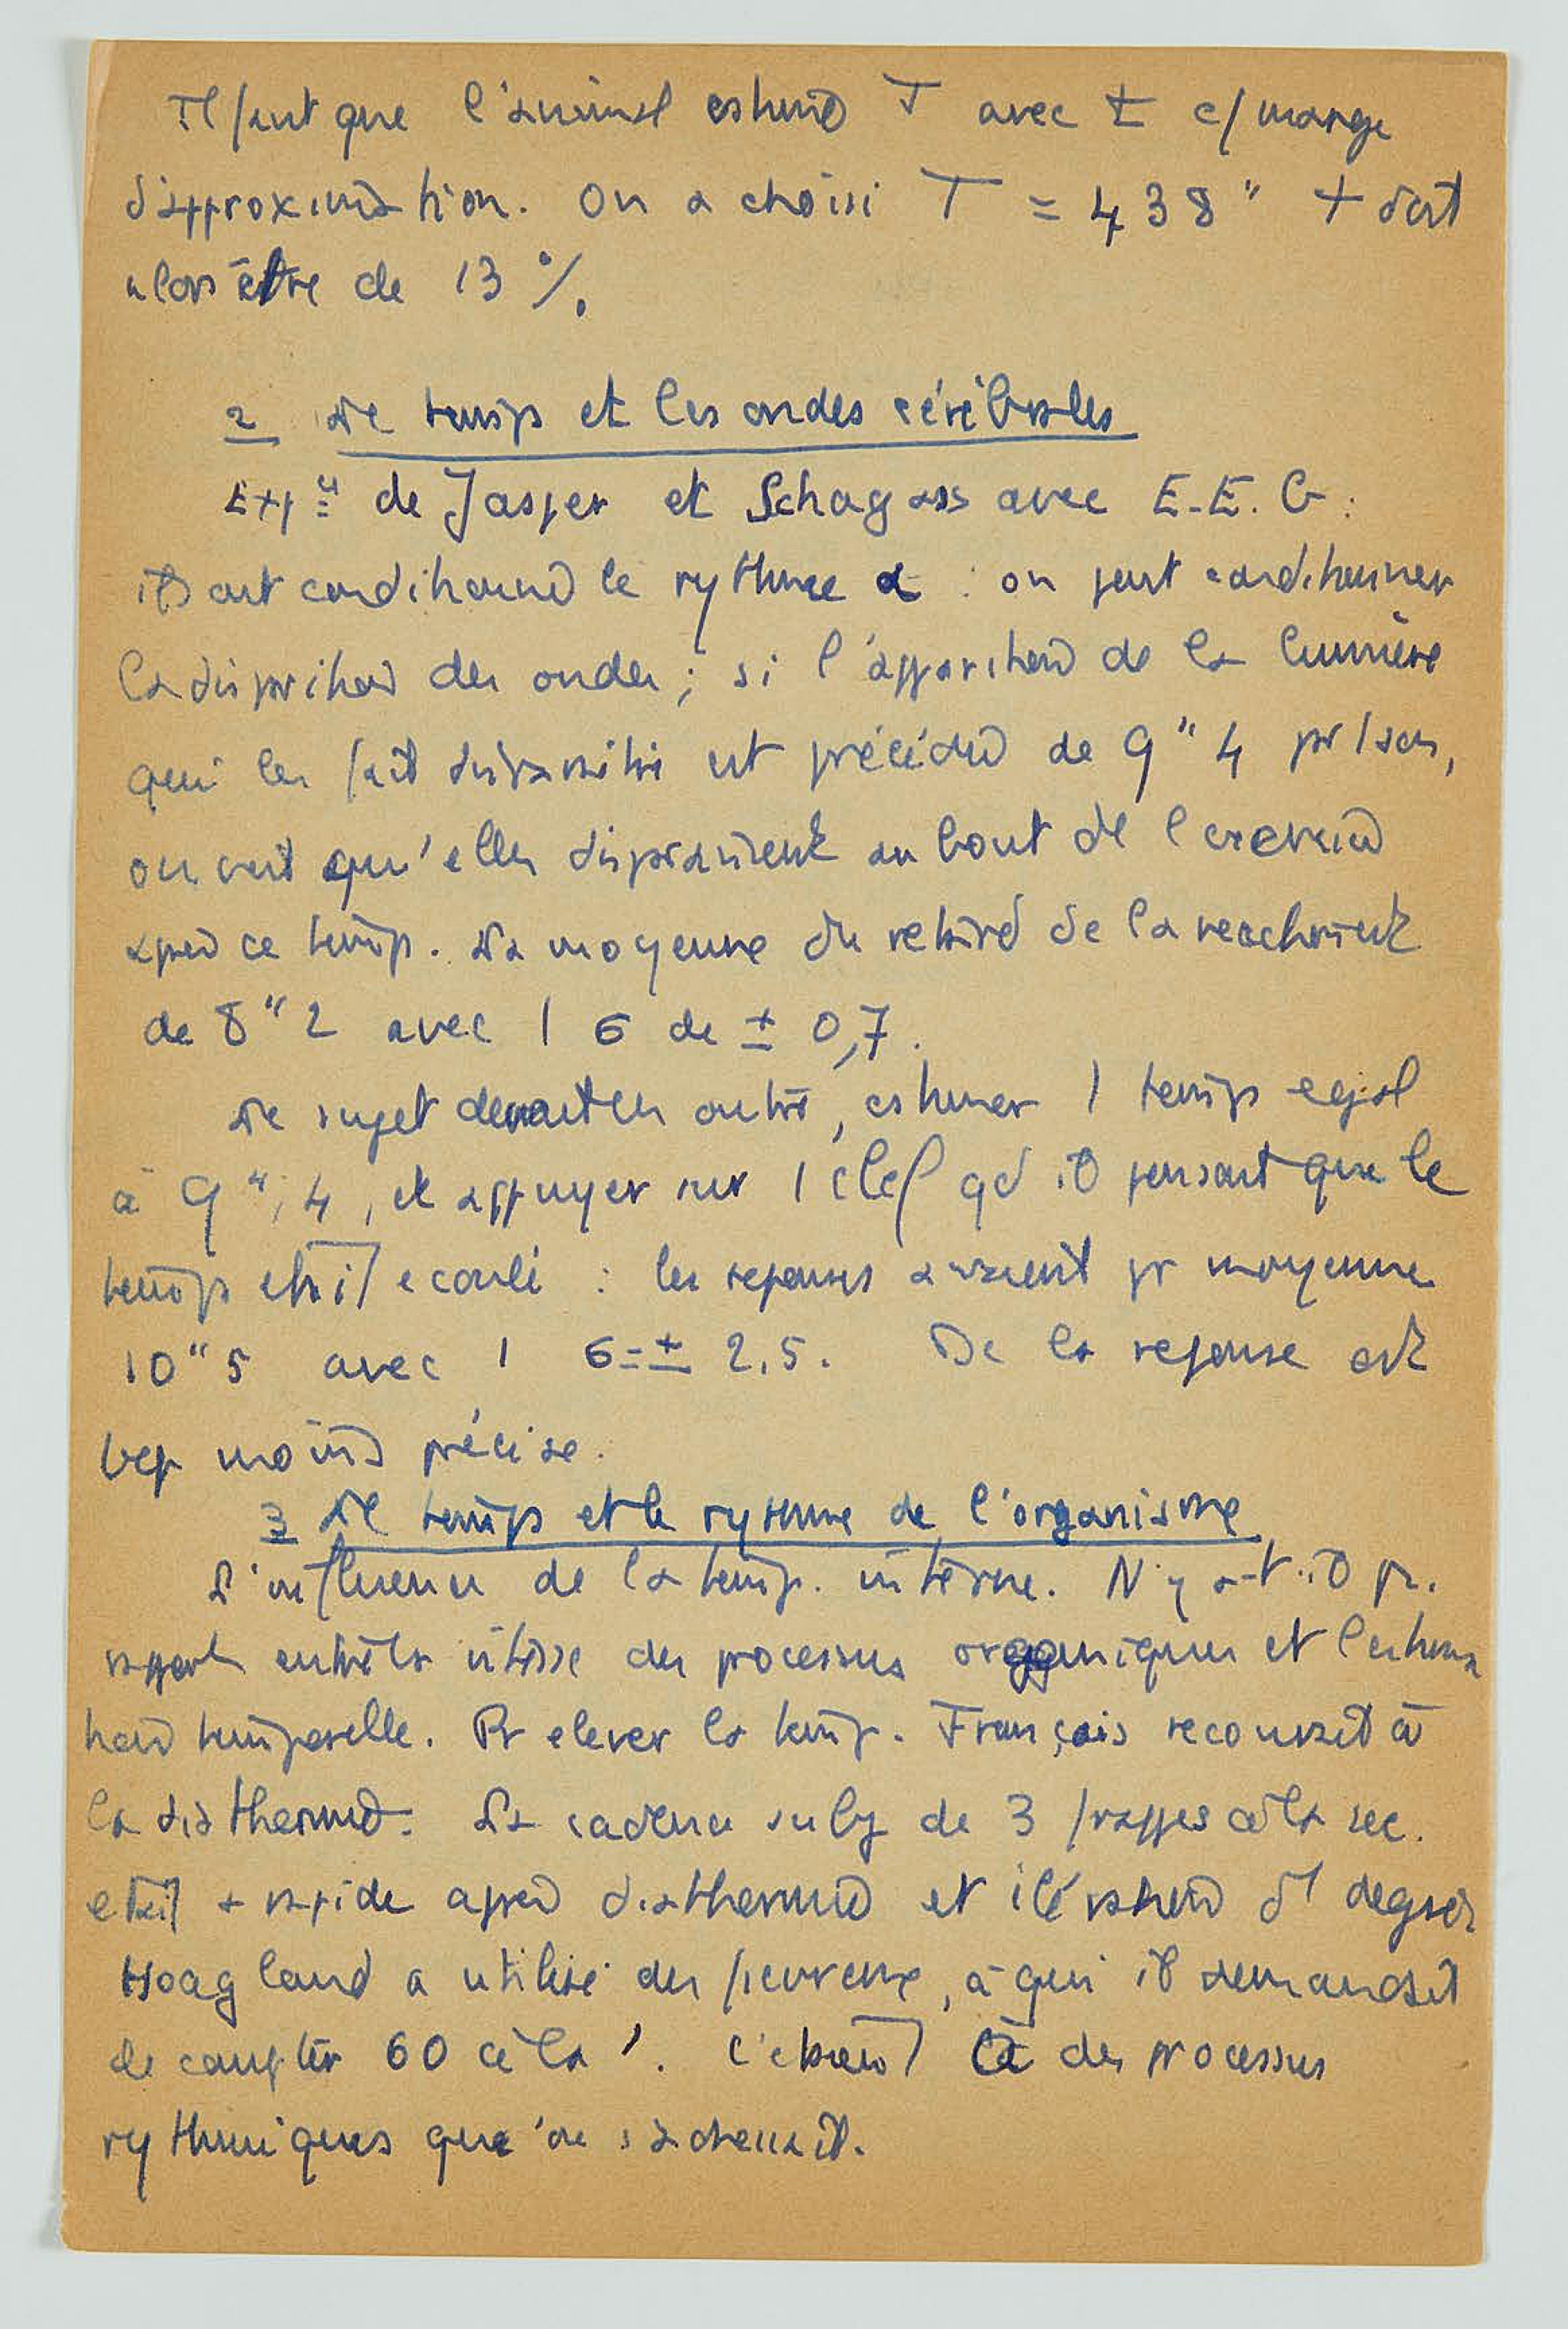 Il faut que l'animal estime T avec t c/ marge
d'approximation. On a choisi T = 438" t doit
alors être de 13 %.
2 Le temps et les ondes cérébrales
Exp de Jasper et Schagass avec E.E.G.:
ils ont conditionné le rythme α : on peut conditionner
la disparition des ondes ; si l'apparition de la lumière
qui les fait disparaître est précédée de 9"4 pr 1 son,
on voit qu'elles disparaissent au bout de l'
après ce temps. La moyenne du retard de la réaction est
de 8"2 avec 1 σ de ± 0,7.
Le sujet devait en outre, estimer 1 temps egal
à 9",4, et appuyer sur 1 clef qd il pensait que le
temps était ecoulé : les reponses avaient pr moyenne
10"5 avec 1 σ=± 2,5. De la reponse est
bcp moins précise.
3 Le temps et le rythme de l'organisme
L'influence de la temp. interne. N'y a-t-il pr.
rapport entre la vitesse des processus organiques et l'estima
tion temporelle. Pr elever la temp. François recourait à
la diathermie. La cadence subj de 3 frappes à la sec.
etait + rapide après diathermie et élévation d'1 degré
Hoagland a utilisé des fievreux, à qui il demandait
de compter 60 à la '. C'etait à des processus
rythmiques que l'on s'adressait.